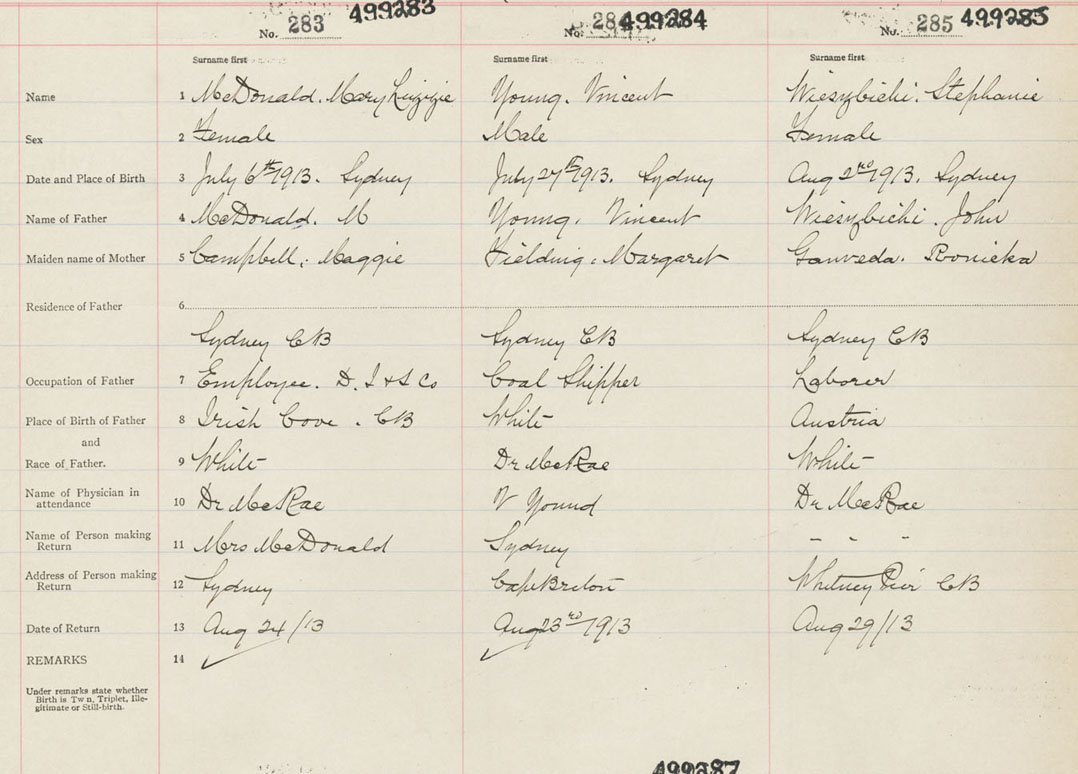 499283 499284 499285
No. 283 No. 284 No. 285
Surname first Surname first Surname first
Name 1 McDonald. Mary Lizzie Young. Vincent Wiesybicki. Stephanie
Sex 2 Female Male Female
Date and Place of Birth 3 July 6th 1913. Sydney July 27th 1913. Sydney Aug 2nd 1913. Sydney
Name of Father 4 McDonald. M Young. Vincent Wiesybicki. John
Maiden name of Mother 5 Campbell, Maggie Fielding, Margaret Ronicka
Residence of Father 6
Sydney CB Sydney CB Sydney CB
Occupation of Father 7 Employee. D. I & S Co Coal Shipper Laborer
Place of Birth of Father 8 Irish Cove. CB White Austria
and
Race of Father. 9 White Dr McRae White
Name of Physician in
attendance 10 Dr McRae V Yound Dr McRae
Name of Person making
Return 11 Mrs McDonald Sydney " " "
Address of Person making
Return 12 Sydney Cape Breton Whitney Pier CB
Date of Return 13 Aug 24/13 Aug 23rd 1913 Aug 29/13
REMARKS 14
Under remarks state whether
Birth is Twn, Triplet, Ille-
gitimate or Still-birth.
499287